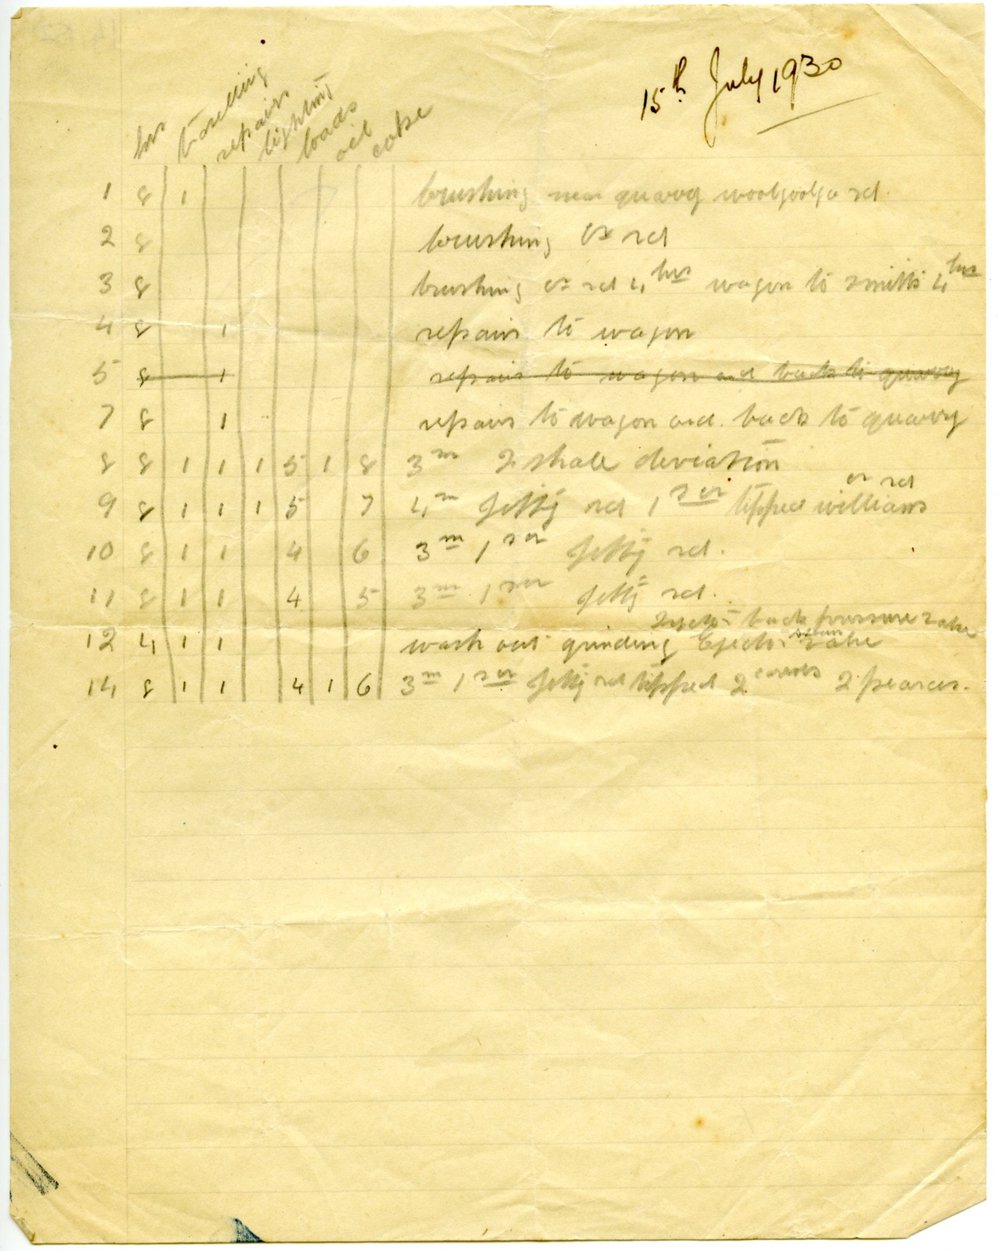 15th July 1930
hrs travelling repairs lighting loads oil coke
1 8 1 brushing near quarry woolgoolga rd.
2 8 brushing or rd
3 8 brushing or rd 4 hrs wagon to smiths 4 hrs
4 8 1 repairs to wagon
5 8 1 repairs to wagon and back to quarry
7 8 1 repairs to wagon and. back to quarry
8 8 1 1 1 5 1 8 3 m 2 shale deviation
or rd
9 8 1 1 1 5 7 4 m jetty rd 1 tipped williams
10 8 1 1 4 6 3 m 1 jetty rd.
11 8 1 1 4 5 3 m 1 jetty rd.
back pressure valve
12 4 1 1 wash out grinding steam valve
14 8 1 1 4 1 6 3 m 1 jetty rd tipped 2 2 pearces.